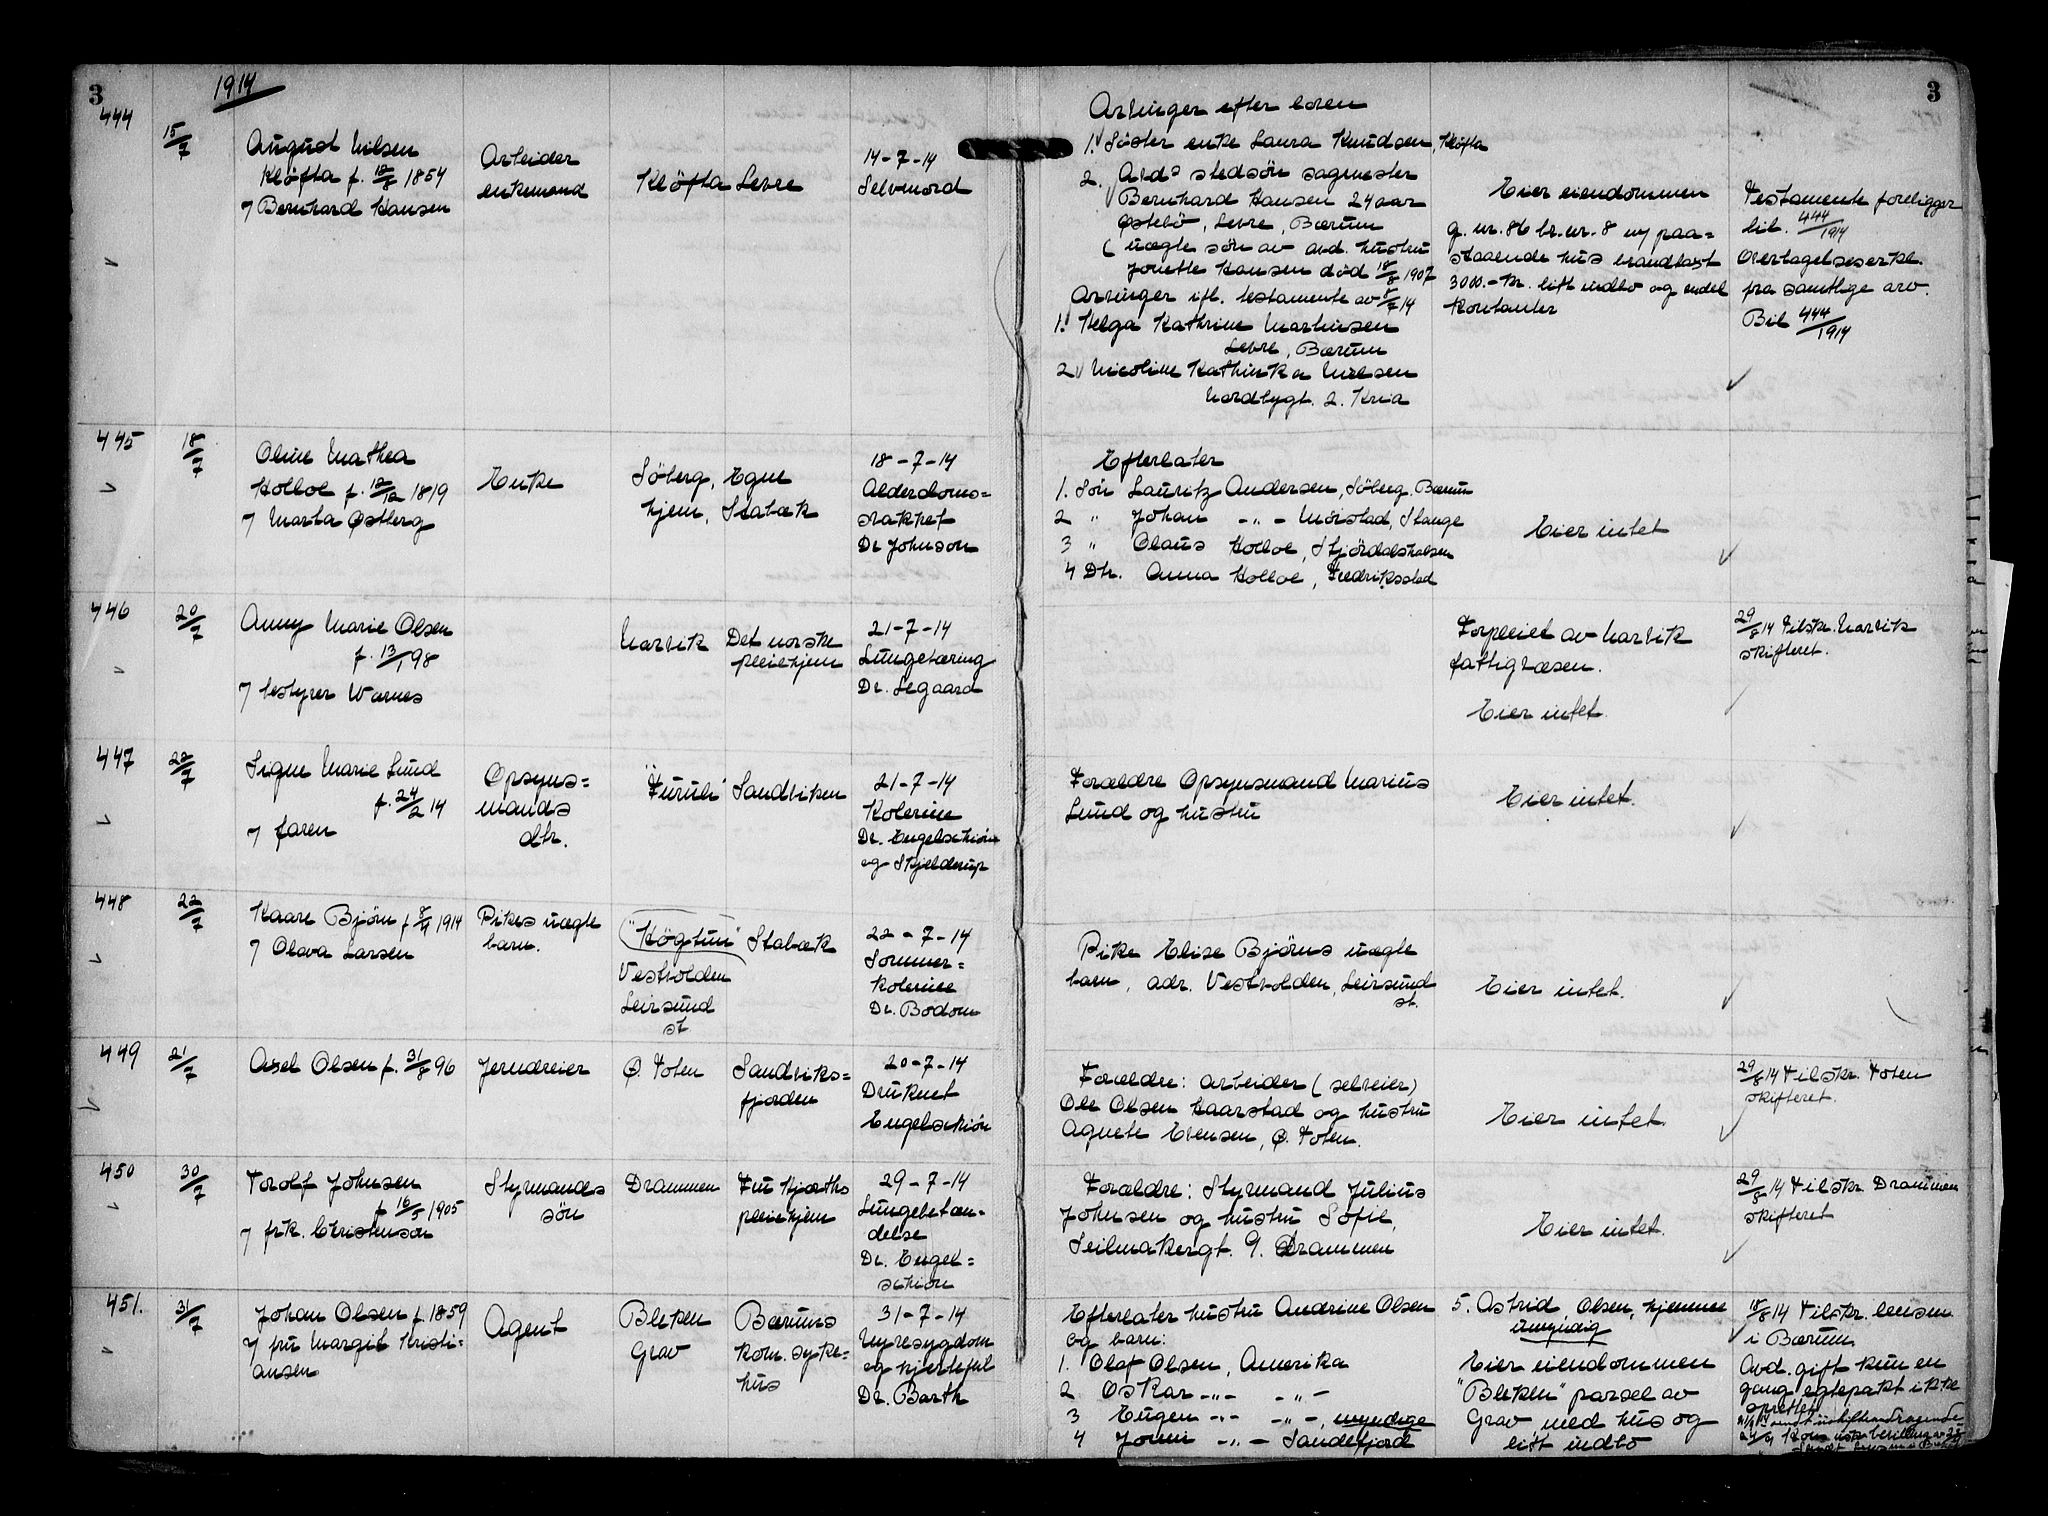 3
1914
3
444
15/7
August Nilsen
Kløfta f. 18/8 1854
7 Bernhard Hansen
Arbeider
enkemand
Kløfta
Levre
14-7-14
Selvmord
Arvinger efter loven
1. Søster enke Laura Knudsen, Kløfta
2. Avds stedsön sagmester
Bernhard Hansen 24 aar
Østebö, Levre, Bærum
(uægte sön av avd. hustru
Jonette Hansen död 18/8 1907
Arvinger ifl. testamente av 8/7 14
1. Helga Kathrine Martinsen
Levre, Bærum
2. Nicoline Kathinka
Nordbygt. 2. Kria
Eier eiendommen
g. nr. 86 br. nr. 8 m/ paa=
staaende hus brandtaxt
3000.- kr. litt indbo og endel
kontanter
Testamente foreligger
bil. 444/1914
Overtagelseserkl.
fra samtlige arv.
Bil 444/1914
445
18/7
Oline Mathea
Holloe f. 12/12 1819
7 Marta Østberg
Enke
Söberg, Egne
hjem, Stabæk
18-7-14
Alderdoms=
svakhet
Dr Johnson
Efterlater
1. Sön Lauritz Andersen, Söberg. Bærum
2 " Johan -"- Mörstad, Stange
3 " Olaus Holloe, Stjördalshalsen
4 Dtr. Anna Holloe, Fredriksstad
Eier intet
446
20/7
Anny Marie Olsen
f. 13/1 98
7 bestyrer Warnes
Narvik
Det norske
pleiehjem
21-7-14
Lungetæring
Dr. Segaard
Forpleiet av Narvik
fattigvæsen.
Eier intet.
29/8 14 Tilskr. Narvik
skifteret.
447
22/7
Signe Marie Lund
f. 24/2 14
7 faren
Opsyns=
mands
dtr.
"Furuli"
Sandviken
21-7-14
Kolerine
Dr. Engelschiön
og Skjelderup
Forældre Opsynsmand Marius
Lund og hustru
Eier intet.
448
22/7
Kaare Björn f 8/4 1914
7 Olava Larsen
Pikes uægte
barn.
"Högtun"
Vestvolden
Leirsund
st
Stabæk
22-7-14
Sommer=
kolerine
Dr. Bodom
Pike Elise Björns uægte
barn, adr. Vestvolden, Leirsund
st.
Eier intet.
449
21/7
Axel Olsen f. 31/8 96
Jerndreier
Ø. Toten
Sandviks=
fjorden
20-7-14
Druknet
Engelschiön
Forældre: arbeider (selveier)
Ole Olsen Haarstad og hustru
Agnete Evensen, Ø. Toten.
Eier intet.
29/8 14 Tilskr. Toten
skifteret.
450
30/7
Torolf Johnsen
f 16/5 1905
7 frk. Christenson
Styrmands
sön
Drammen
Fru Kjærths
pleiehjem
29-7-14
Lungebetæn-
delse
Dr. Engel=
schiön
Forældre: Styrmand Julius
Johnsen og hustru Sofie,
Seilmakergt. 9. Drammen
Eier intet.
29/8 14 Tilskr. Drammen
skifteret
451.
31/7
Johan Olsen f. 1859
7 fru Margit Kristi-
ansen
Agent
Bleken
Grav
Bærums
kom. syke=
hus
31-7-14
Nyresygdom
og hjertefeil
Dr. Barth
Efterlater hustru Andrine Olsen
og barn:
1. Olaf Olsen, Amerika
2 Oskar -"- -"-
3 Eugen -"- -"-, myndige
4 Jonni -"- Sandefjord
5. Astrid Olsen, hjemme
umyndig
Eier eiendommen
"Bleken" parsel av
Grav med hus og
litt indbo
18/8 14 Tilskr. lensm
i Bærum
Avd. gift kun en
gang egtepakt ikke
oprettet